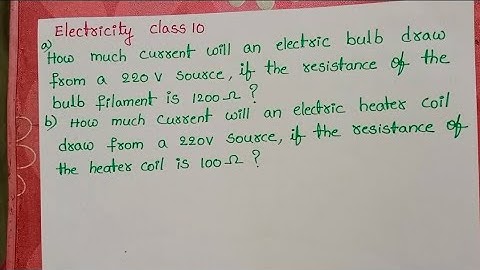 Electricity class 10
a)
How much current will an electric bulb draw
from a 220 V source, if the resistance of the
bulb filament is 1200 Ω ?
b) How much current will an electric heater coil
draw from a 220V source, if the resistance of
the heater coil is 100 Ω ?